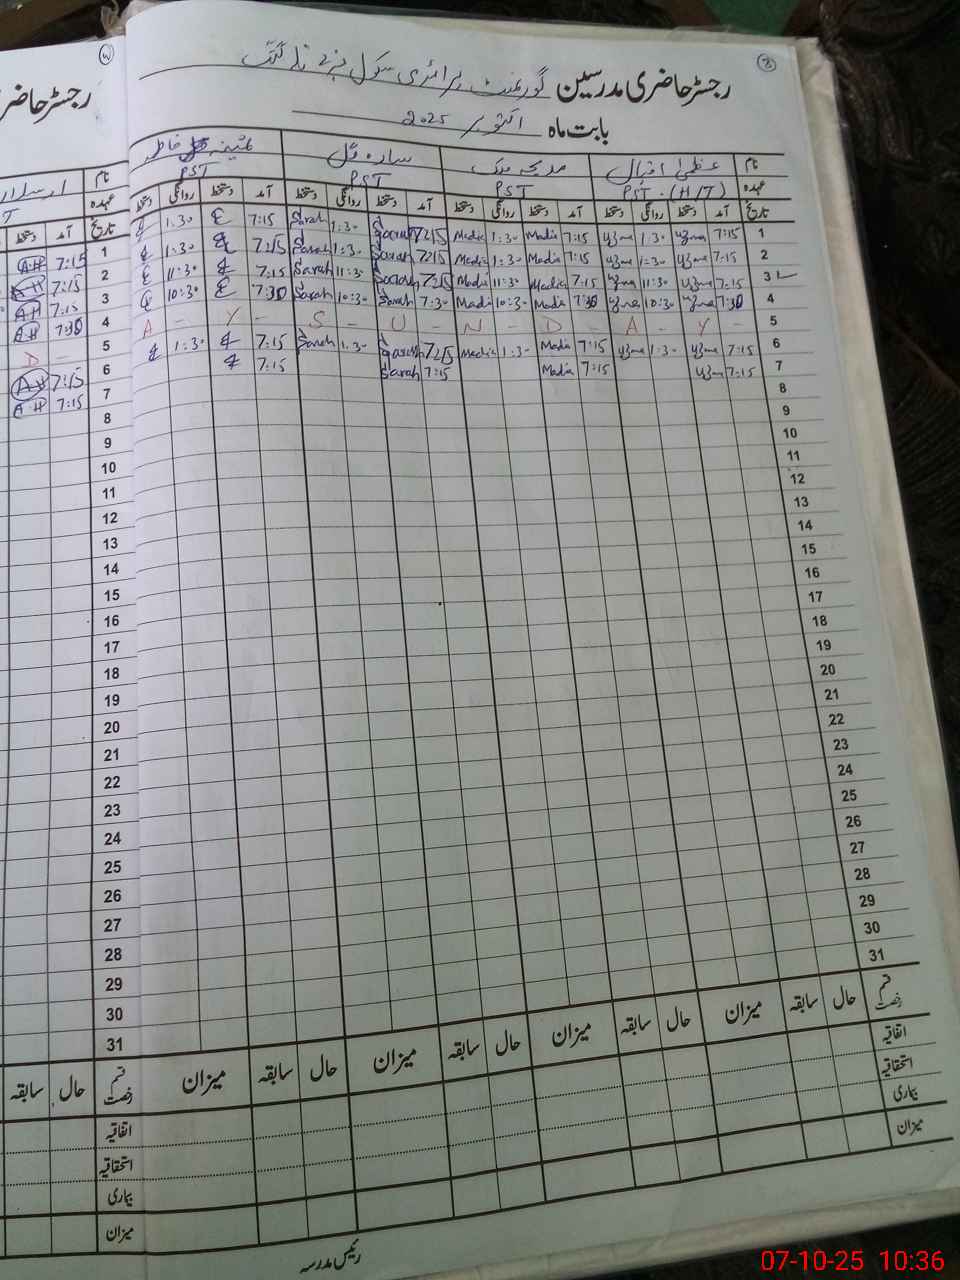 رجسٹر حاضری مدرسین گورنمنٹ پرائمری سکول
بابت ماہ اکتوبر 2025
نام عظمیٰ اقبال مدیحہ ملک سارہ گل فاطمہ
عہدہ PST.(H/T) PST PST PST
تاریخ آمد دستخط روانگی دستخط آمد دستخط روانگی دستخط آمد دستخط روانگی دستخط آمد دستخط روانگی دستخط
1 7:15 Uzma 1:30 Uzma 7:15 Madia 1:30 Madia 7:15 Sarah 1:30 Sarah 7:15 1:30
2 7:15 Uzma 1:30 Uzma 7:15 Madia 1:30 Madia 7:15 Sarah 1:30 Sarah 7:15 1:30
3 7:15 Uzma 11:30 Uzma 7:15 Madia 11:30 Madia 7:15 Sarah 11:30 Sarah 7:15 11:30
4 7:30 Uzma 10:30 Uzma 7:30 Madia 10:30 Madia 7:30 Sarah 10:30 Sarah 7:30 10:30
A - Y - S - U - N - D - A - Y - 5
6 7:15 Uzma 1:30 Uzma 7:15 Madia 1:30 Madia 7:15 Sarah 1:30 Sarah 7:15 1:30
7 7:15 Uzma 7:15 Madia 7:15 Sarah 7:15
8
9
10
11
12
13
14
15
16
17
18
19
20
21
22
23
24
25
26
27
28
29
30
31
قسم رخصت حال سابقہ میزان حال سابقہ میزان حال سابقہ میزان حال سابقہ میزان
اتفاقیہ
استحقاقیہ
بیماری
میزان
رئیس مدرسہ
رجسٹر حاضر
نام
عہدہ
تاریخ آمد دستخط
1 7:15 A.H
2 7:15 A.H
3 7:15 A.H
4 7:30 A.H
5 - D
6 7:15 A.H
7 7:15 A.H
8
9
10
11
12
13
14
15
16
17
18
19
20
21
22
23
24
25
26
27
28
29
30
31
قسم رخصت حال سابقہ
اتفاقیہ
استحقاقیہ
بیماری
میزان
07-10-25 10:36